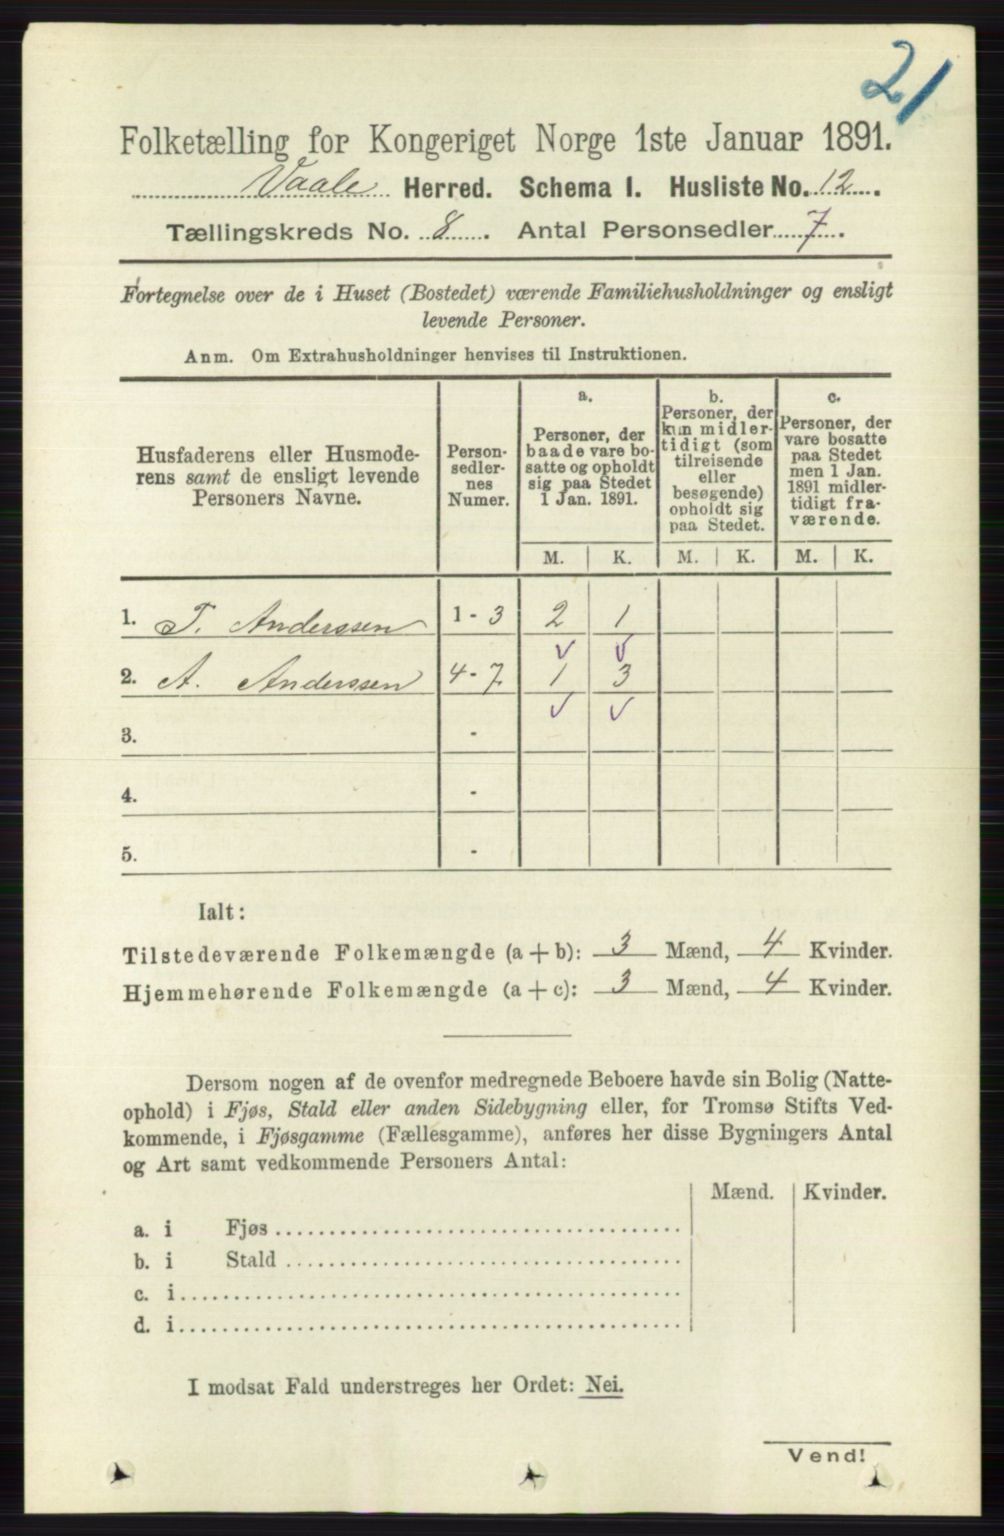 21
Folketælling for Kongeriget Norge 1ste Januar 1891.
Vaale Herred. Schema I. Husliste No. 12.
Tællingskreds No. 8. Antal Personsedler 7.
Fortegnelse over de i Huset (Bostedet) værende Familiehusholdninger og ensligt
levende Personer.
Anm. Om Extrahusholdninger henvises til Instruktionen.
Husfaderens eller Husmode-
rens samt de ensligt levende
Personers Navne.
Person-
sedler-
nes
Numer.
a.
Personer, der
baade vare bo-
satte og opholdt
sig paa Stedet
1 Jan. 1891.
b.
Personer, der
kun midler-
tidigt (som
tilreisende
eller
besøgende)
opholdt sig
paa Stedet.
c.
Personer, der
vare bosatte
paa Stedet
men 1 Jan.
1891 midler-
tidigt fra-
værende.
M. K. M. K. M. K.
1. T. Anderssen 1-3 2 1
2. A. Anderssen 4-7 1 3
3. -
4. -
5. -
Ialt:
Tilstedeværende Folkemængde (a+b): 3 Mænd, 4 Kvinder.
Hjemmehørende Folkemængde (a+c): 3 Mænd, 4 Kvinder.
Dersom nogen af de ovenfor medregnede Beboere havde sin Bolig (Natte-
ophold) i Fjøs, Stald eller anden Sidebygning eller, for Tromsø Stifts Ved-
kommende, i Fjøsgamme (Fællesgamme), anføres her disse Bygningers Antal
og Art samt vedkommende Personers Antal:
Mænd. Kvinder.
a. i Fjøs
b. i Stald
c. i
d. i
I modsat Fald understreges her Ordet: Nei.
Vend!